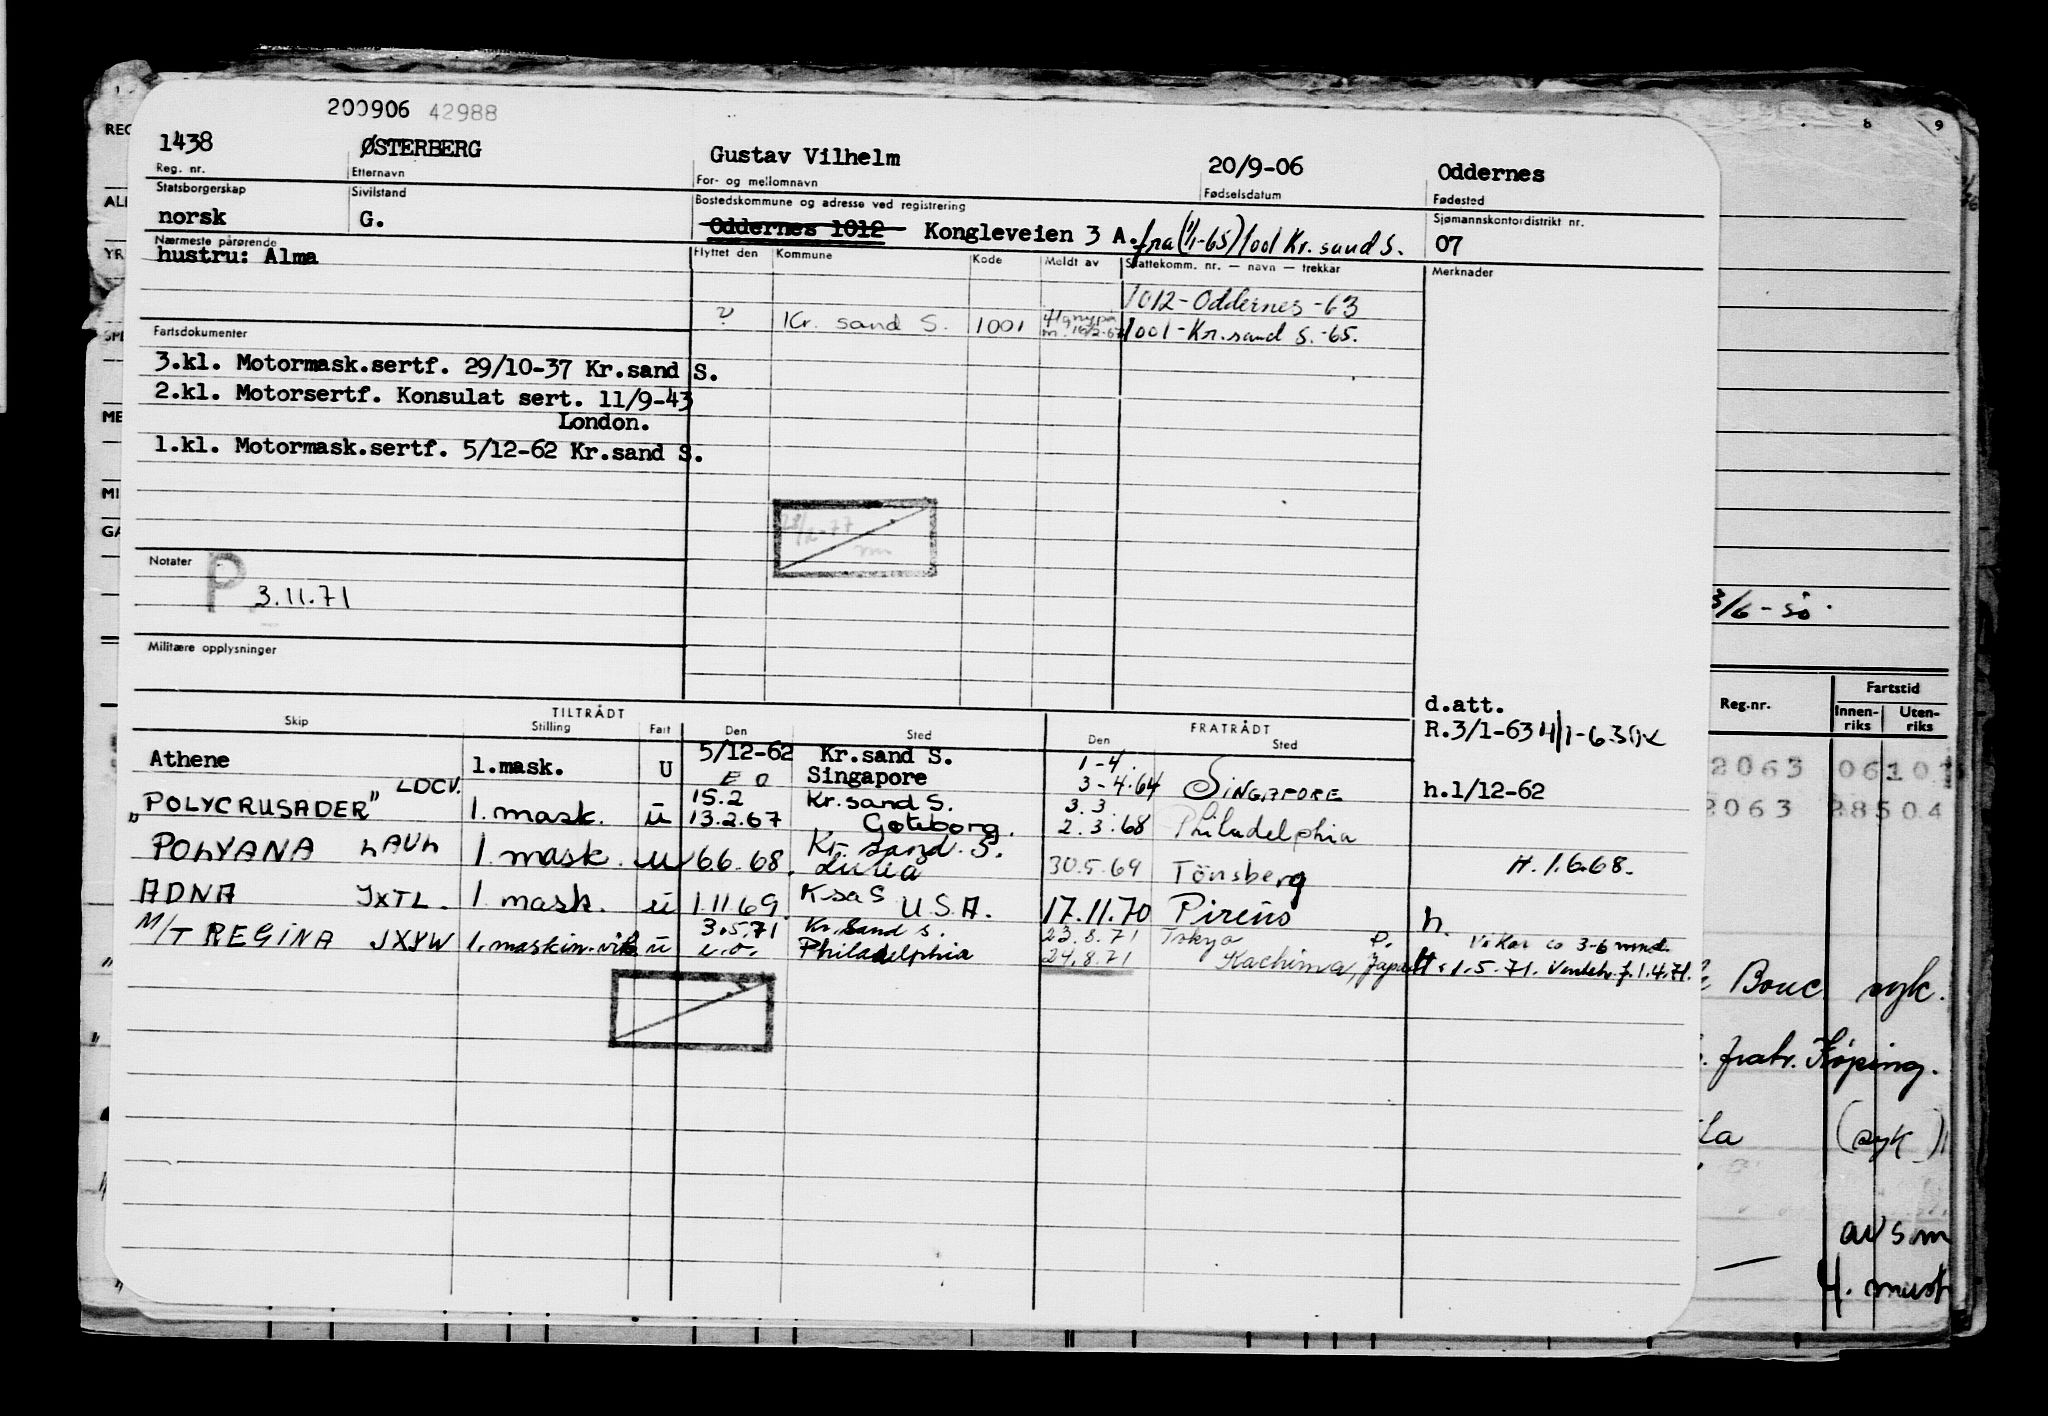 200906 42988
1438 ØSTERBERG Gustav Vilhelm 20/9-06 Oddernes
Reg. nr. Etternavn For- og mellomnavn Fødselsdatum Fødested
Statsborgerskap Sivilstand Bostedskommune og adresse ved registrering Sjømannskontordistrikt nr.
norsk G. Oddernes 1012 Kongleveien 3 A. fra (1/1-65) 1001 Kr.sand S. 07
Nærmeste pårørende Flyttet den Kommune Kode Meldt av Skattekomm. nr. — navn — trekkar Merknader
hustru: Alma
1012-Oddernes-63
? Kr. sand S. 1001 1001-Kr.sand S.-65.
Fartsdokumenter
3.kl. Motormask.sertf. 29/10-37 Kr.sand S.
2.kl. Motorsertf. Konsulat sert. 11/9-43
London.
1.kl. Motormask.sertf. 5/12-62 Kr.sand S.
Notater
P 3.11.71
Militære opplysninger
d.att.
TILTRÅDT FRATRÅDT R.3/1-63
Skip Stilling Fart Den Sted Den Sted
Athene 1.mask. U 5/12-62 Kr.sand S. 1-4.
E O Singapore 3-4.64 SINGAPORE h.1/12-62
"POLYCRUSADER" LDCV. 1. mask. u 15.2 Kr.sand S. 3.3
13.2.67 Göteborg. 2.3.68 Philadelphia
POLYANA LAUL 1. mask. u 6.6.68. Kr. sand. S.
Lulea 30.5.69 Tönsberg H. 1.6.68.
ADNA JXTL. 1. mask. u 1.11 69. KsaS U.S.A. 17.11.70 Pireus h.
M/T REGINA JXYW 1. maskin.vik u 3.5.71 Kr. Sand S. 23.8.71 Tokyo P. Vikar ca 3-6 mnd.
e.o. Philadelphia 24.8.71 Kachima, Japan H. 1.5.71. Ventet. f. 1.4.71.
8 9
3/6-50.
Reg.nr. Fartstid
Innen-riks Uten-riks
2063 06101
2063 28504
Bouc. syk.
fratr. Köping.
(syk)
avsm
4. must